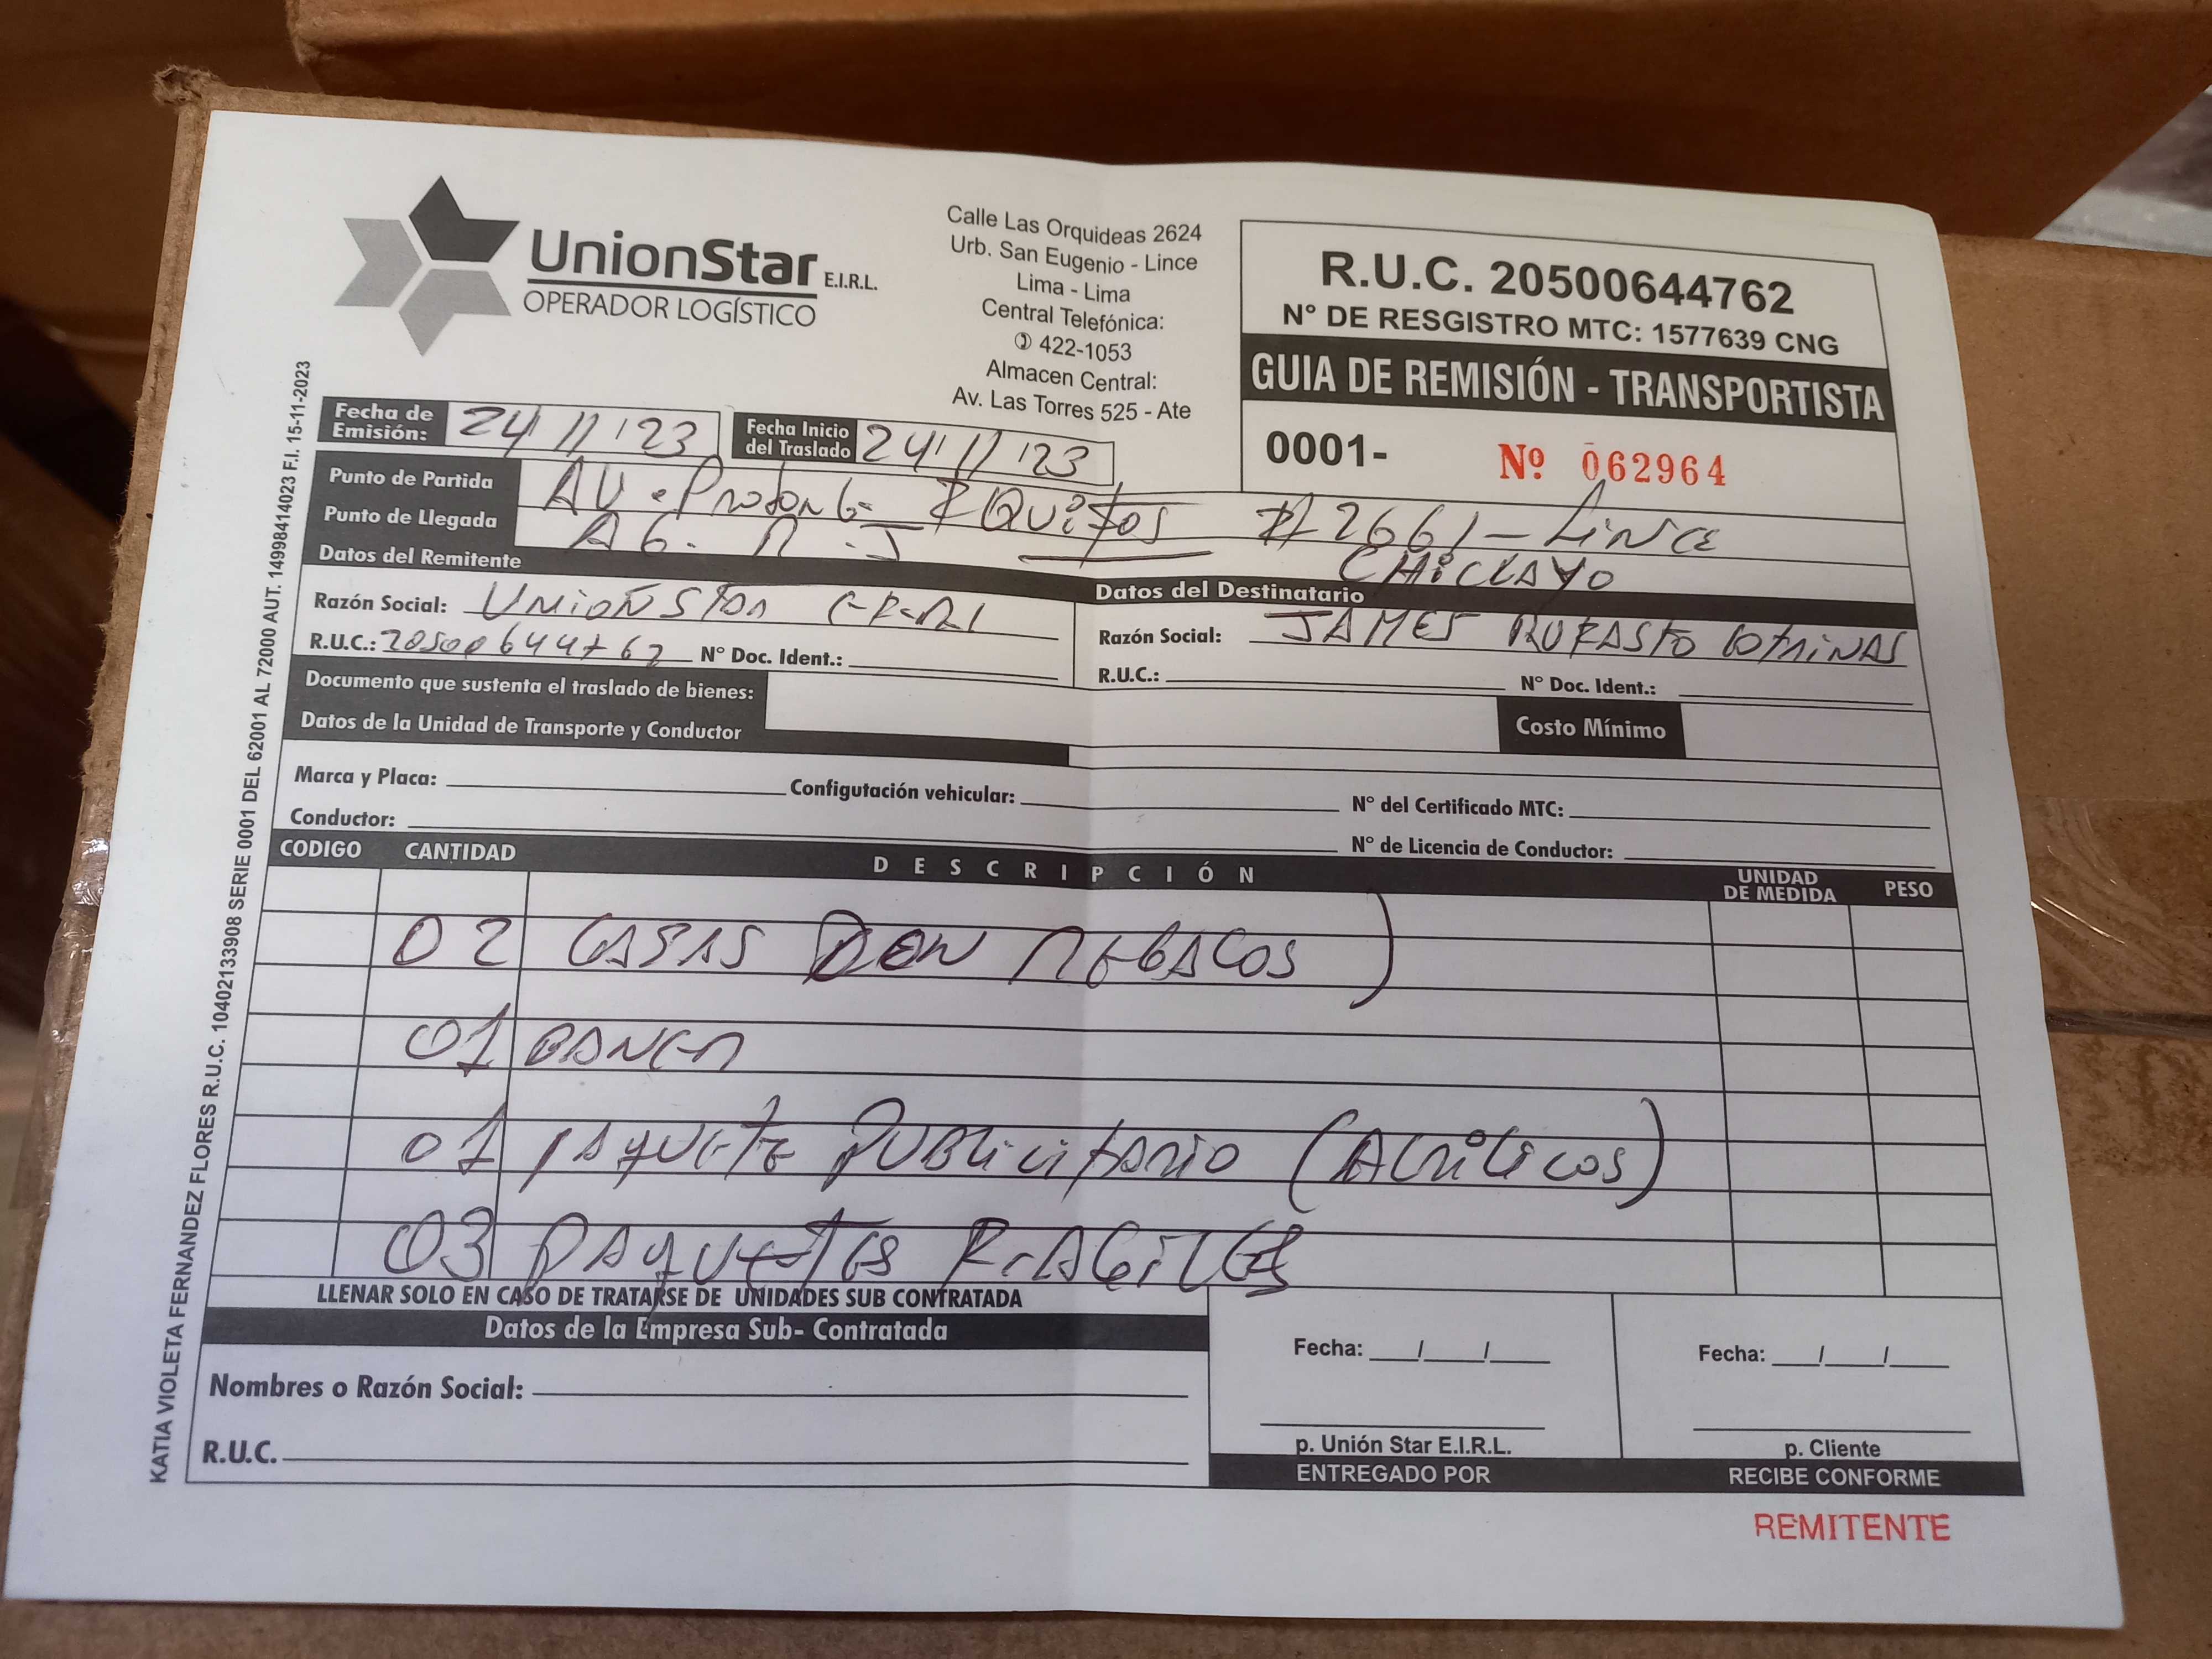 UnionStar E.I.R.L.
OPERADOR LOGÍSTICO
Calle Las Orquideas 2624
Urb. San Eugenio - Lince
Lima - Lima
Central Telefónica:
422-1053
Almacen Central:
Av. Las Torres 525 - Ate
R.U.C. 20500644762
N° DE RESGISTRO MTC: 1577639 CNG
GUIA DE REMISIÓN - TRANSPORTISTA
0001- Nº 062964
Fecha de Emisión: 24/11/23 Fecha Inicio del Traslado 24/11/23
Punto de Partida AV. Prolong. IQUITOS # 2661 - LINCE
Punto de Llegada AG. CHICLAYO
Datos del Remitente
Razón Social: UNIONSTAR
R.U.C.: 20500644762 N° Doc. Ident.:
Datos del Destinatario
Razón Social: JAMES RUFASTO
R.U.C.: N° Doc. Ident.:
Documento que sustenta el traslado de bienes:
Datos de la Unidad de Transporte y Conductor
Costo Mínimo
Marca y Placa: Configutación vehicular: N° del Certificado MTC:
Conductor: N° de Licencia de Conductor:
CODIGO CANTIDAD DESCRIPCIÓN UNIDAD DE MEDIDA PESO
02 )
01
01 PAQUETE PUBLICITARIO (ACRILICOS)
03 PAQUETES FRAGILES
LLENAR SOLO EN CASO DE TRATARSE DE UNIDADES SUB CONTRATADA
Datos de la Empresa Sub- Contratada
Nombres o Razón Social:
R.U.C.
Fecha: / /
p. Unión Star E.I.R.L.
ENTREGADO POR
Fecha: / /
p. Cliente
RECIBE CONFORME
REMITENTE
KATIA VIOLETA FERNANDEZ FLORES R.U.C. 10402133908 SERIE 0001 DEL 62001 AL 72000 AUT. 14998414023 F.I. 15-11-2023